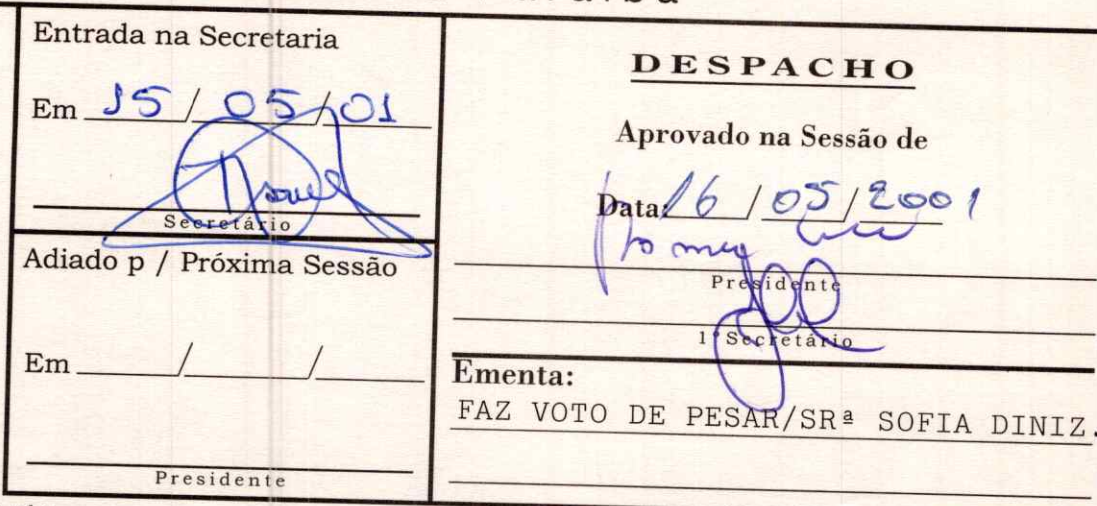 Entrada na Secretaria
Em 15/05/01
Secretário
Adiado p / Próxima Sessão
Em / /
Presidente
DESPACHO
Aprovado na Sessão de
Data: 16/05/2001
Presidente
1º Secretário
Ementa:
FAZ VOTO DE PESAR/SRª SOFIA DINIZ.